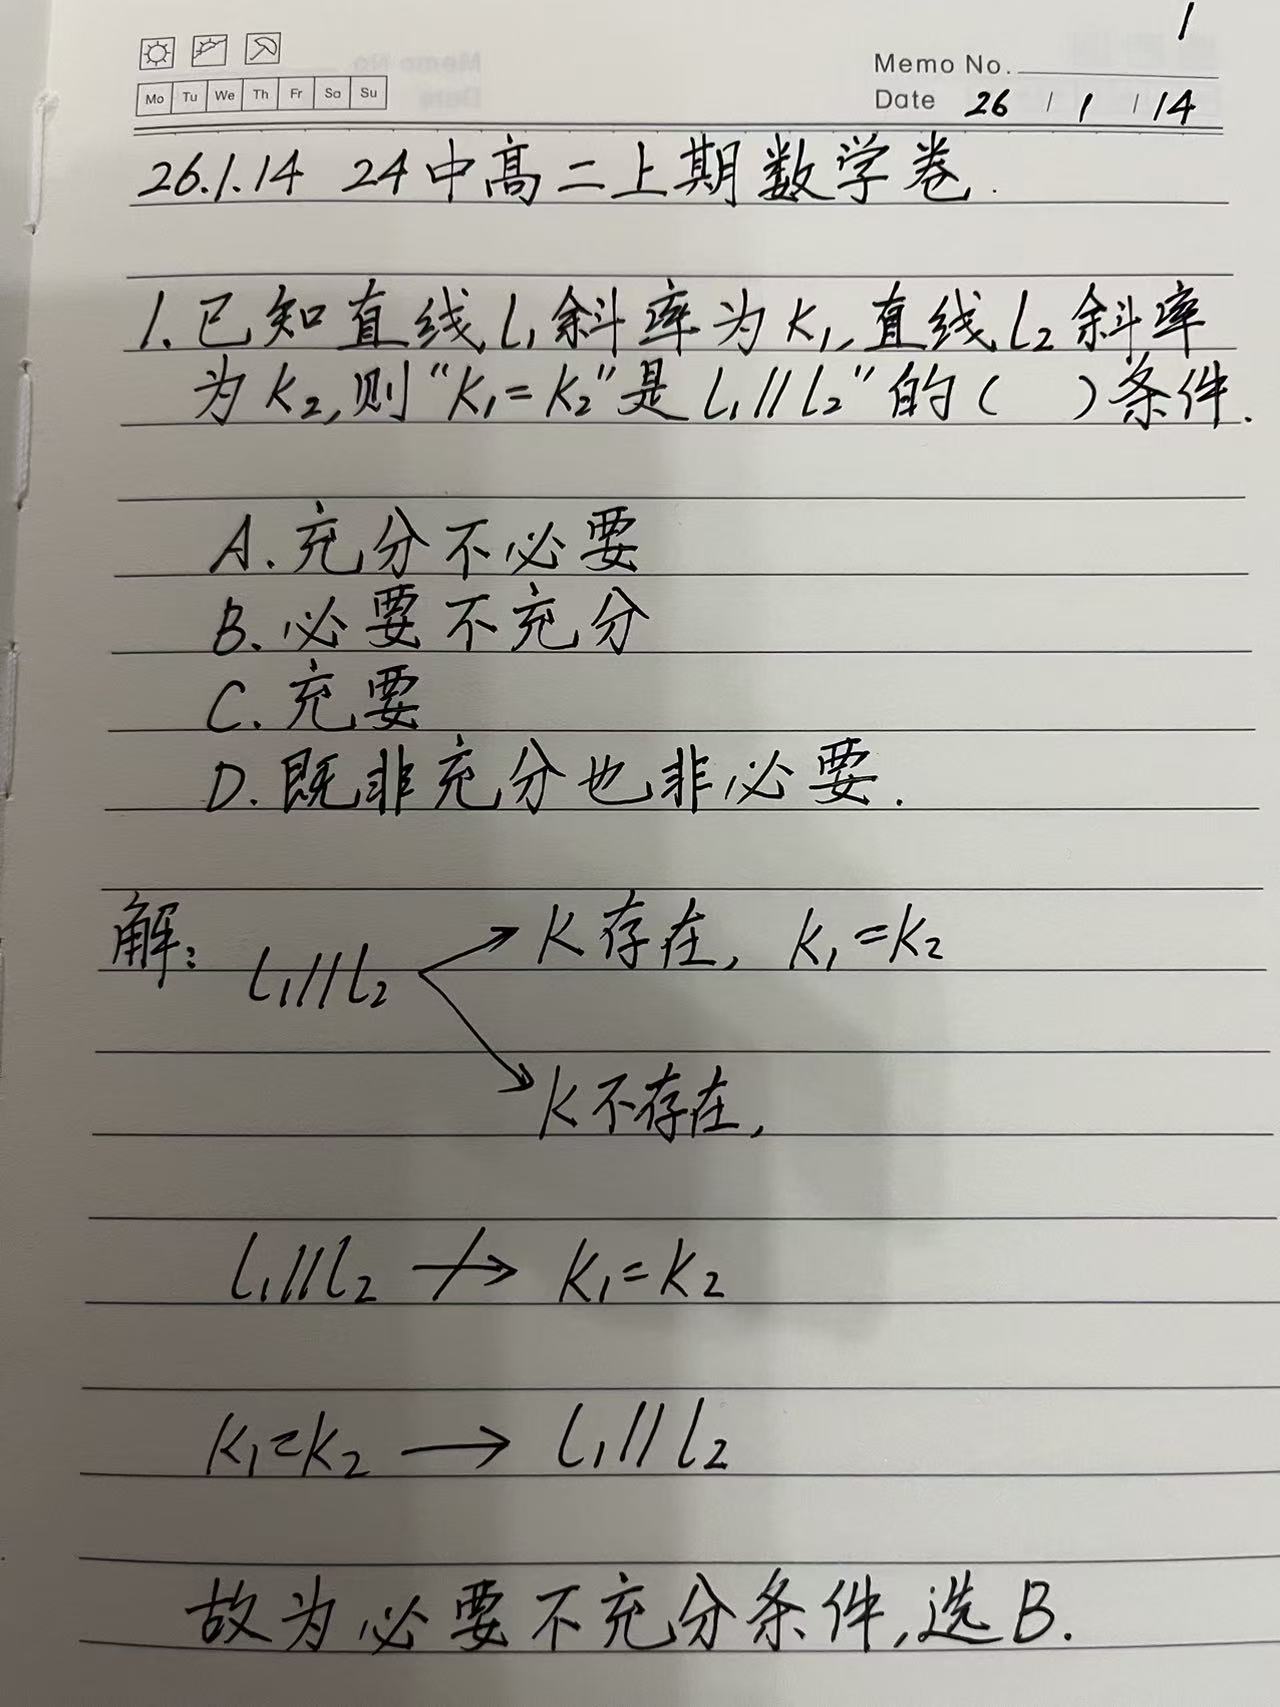 1
Memo No.
Mo Tu We Th Fr Sa Su
Date 26 / 1 / 14
26.1.14 24中高二上期数学卷.
1.已知直线l₁斜率为k₁,直线l₂斜率
为k₂,则“k₁=k₂”是l₁//l₂”的( )条件.
A.充分不必要
B.必要不充分
C.充要
D.既非充分也非必要.
解: l₁//l₂ → k存在, k₁=k₂
→ k不存在,
l₁//l₂ ↛ k₁=k₂
k₁=k₂ → l₁//l₂
故为必要不充分条件,选B.